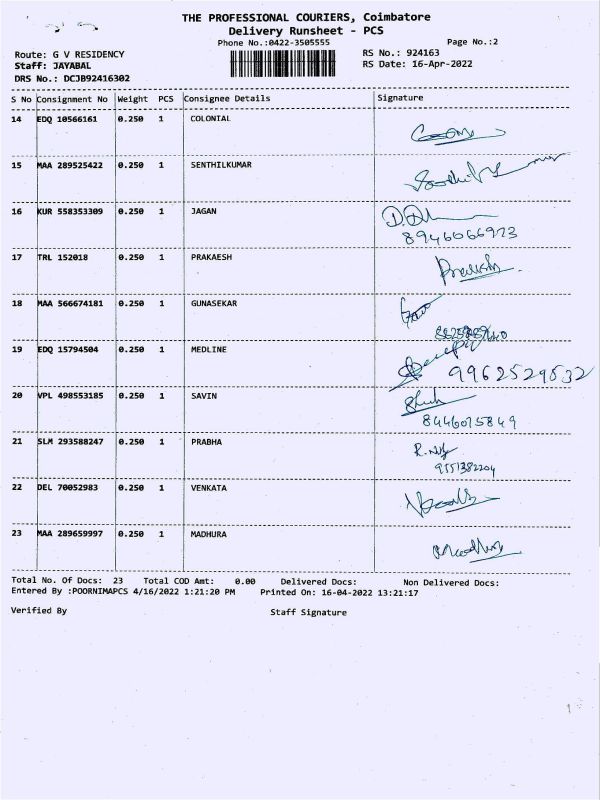 THE PROFESSIONAL COURIERS, Coimbatore
Delivery Runsheet - PCS
Phone No.:0422-3505555 Page No.:2
Route: G V RESIDENCY RS No.: 924163
Staff: JAYABAL RS Date: 16-Apr-2022
DRS No.: DCJB92416302
S No Consignment No Weight PCS Consignee Details Signature
14 EDQ 10566161 0.250 1 COLONIAL
15 MAA 289525422 0.250 1 SENTHILKUMAR
16 KUR 558353309 0.250 1 JAGAN
8946066923
17 TRL 152018 0.250 1 PRAKAESH
18 MAA 566674181 0.250 1 GUNASEKAR
19 EDQ 15794504 0.250 1 MEDLINE
9962529532
20 VPL 498553185 0.250 1 SAVIN
8446075849
21 SLM 293588247 0.250 1 PRABHA
9551382204
22 DEL 70052983 0.250 1 VENKATA
23 MAA 289659997 0.250 1 MADHURA
Total No. Of Docs: 23 Total COD Amt: 0.00 Delivered Docs: Non Delivered Docs:
Entered By :POORNIMAPCS 4/16/2022 1:21:20 PM Printed On: 16-04-2022 13:21:17
Verified By Staff Signature